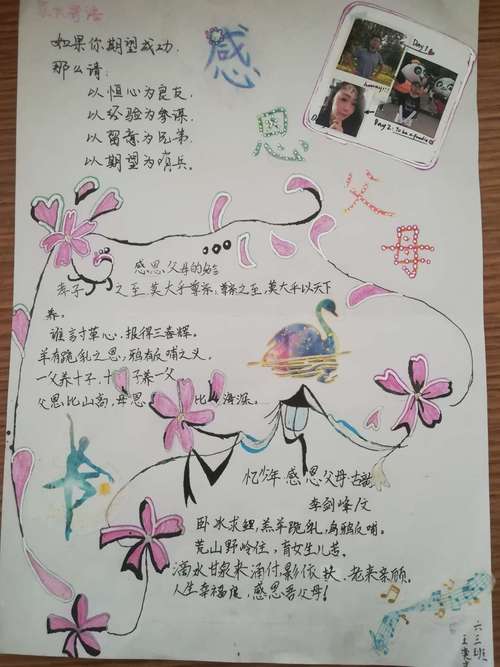 家长寄语
如果你期望成功,
那么请:
以恒心为良友,
以经验为参谋,
以留意为兄弟,
以期望为哨兵。
感
恩
父
母
Day 1
Day 2 To be a foodie
感恩父母的名言
孝子之至,莫大乎尊亲,尊亲之至,莫大乎以天下
养。
谁言寸草心,报得三春晖。
羊有跪乳之恩,鸦有反哺之义,
一父养十子,十子养一父
父恩比山高,母恩比海深。
忆少年 感恩父母
李剑峰/文
卧冰求鲤,羔羊跪乳,乌鸦反哺。
荒山野岭住,育女生儿苦。
滴水甘泉来涌付,影依扶、老来亲顾。
人生幸福度,感恩吾父母!
六三班